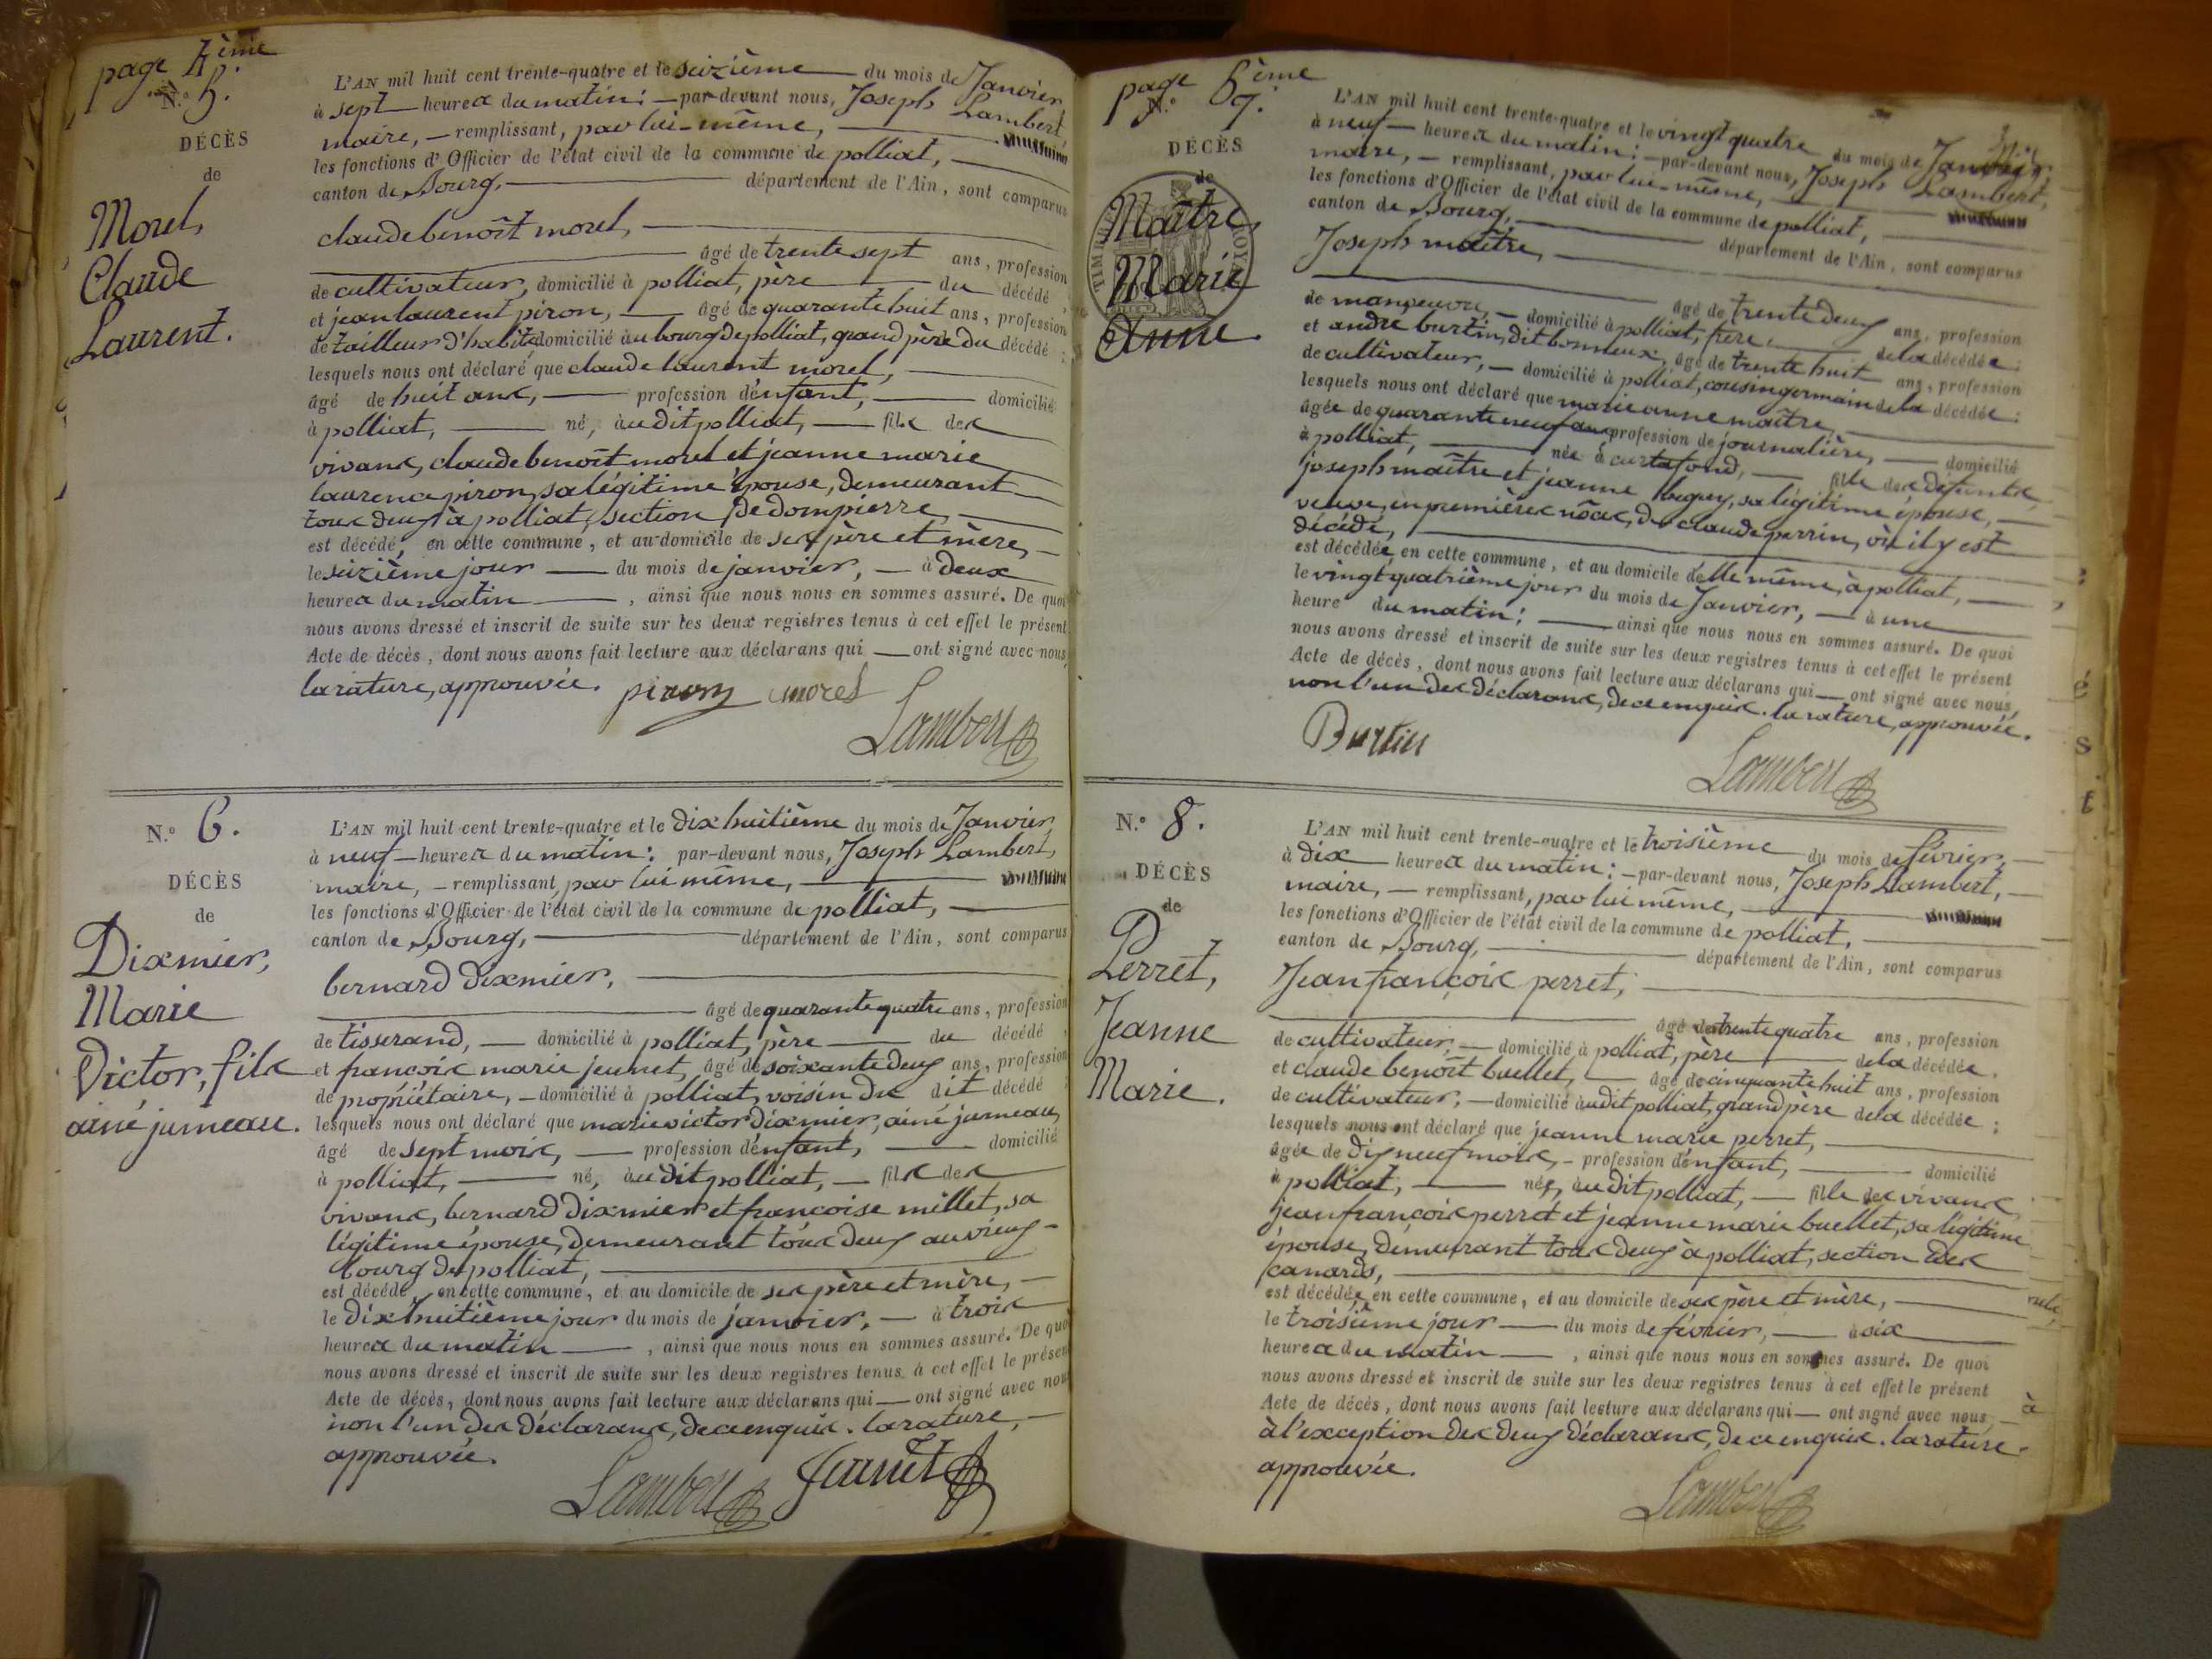 page 4ème
N.° 5.
DÉCÈS
de
Morel,
Claude
Laurent.
L'AN mil huit cent trente-quatre et le seizième du mois de Janvier,
à sept heures du matin; par-devant nous, Joseph Lambert,
maire, remplissant, par lui-même,
les fonctions d'Officier de l'état civil de la commune de polliat,
canton de Bourg, département de l'Ain, sont comparus
claude benoît morel,
âgé de trente sept ans, profession
de cultivateur, domicilié à polliat, père du décédé,
et jean laurent piron, âgé de quarante huit ans, profession
de tailleur d'habits, domicilié au bourg de polliat, grand père du décédé;
lesquels nous ont déclaré que claude laurent morel,
âgé de huit ans, profession d'enfant, domicilié
à polliat, né, audit polliat, fils des
vivans, claude benoît morel et jeanne marie
laurence piron, sa légitime épouse, demeurant
tous deux à polliat, section de dompierre,
est décédé, en cette commune, et au domicile de ses père et mère,
le seizième jour du mois de janvier, à deux
heures du matin, ainsi que nous nous en sommes assuré. De quoi
nous avons dressé et inscrit de suite sur les deux registres tenus à cet effet le présent
Acte de décès, dont nous avons fait lecture aux déclarans qui ont signé avec nous,
la rature, approuvée. piron morel
Lambert
N.° 6.
DÉCÈS
de
Dixmier,
Marie
Victor, fils
ainé jumeau.
L'AN mil huit cent trente-quatre et le dix huitième du mois de Janvier,
à neuf heures du matin: par-devant nous, Joseph Lambert,
maire, remplissant, par lui même,
les fonctions d'Officier de l'état civil de la commune de polliat,
canton de Bourg, département de l'Ain, sont comparus
bernard dixmier,
âgé de quarante quatre ans, profession
de tisserand, domicilié à polliat, père du décédé,
et françois marie jeunet, âgé de soixante deux ans, profession
de propriétaire, domicilié à polliat, voisin du dit décédé;
lesquels nous ont déclaré que marie victor dixmier, ainé jumeau,
âgé de sept mois, profession d'enfant, domicilié
à polliat, né, audit polliat, fils des
vivans, bernard dixmier et françoise millet, sa
légitime épouse, demeurant tous deux au vieux-
bourg de polliat,
est décédé, en cette commune, et au domicile de ses père et mère,
le dix huitième jour du mois de janvier, à trois
heures du matin, ainsi que nous nous en sommes assuré. De quoi
nous avons dressé et inscrit de suite sur les deux registres tenus à cet effet le présent
Acte de décès, dont nous avons fait lecture aux déclarans qui ont signé avec nous
non l'un des déclarans, de ce enquis. la rature,
approuvée.
Lambert Jeunet
page 5ème
N.° 7.
DÉCÈS
de
Maître,
Marie
Anne
L'AN mil huit cent trente-quatre et le vingt quatre du mois de Janvier,
à neuf heures du matin; par-devant nous, Joseph Lambert,
maire, remplissant, par lui-même,
les fonctions d'Officier de l'état civil de la commune de polliat,
canton de Bourg, département de l'Ain, sont comparus
Joseph maître,
âgé de trente deux ans, profession
de manœuvre, domicilié à polliat, frère de la décédée;
et andré burtin, dit bonneux, âgé de trente huit ans, profession
de cultivateur, domicilié à polliat, cousin germain de la décédée:
lesquels nous ont déclaré que marie anne maître,
âgée de quarante neuf ans profession de journalière, domicilié
à polliat, née à curtafond, fille des défunts
joseph maître et jeanne sa légitime épouse,
veuve, en premières nôces, de claude perrin, où il y est
décédé,
est décédée, en cette commune, et au domicile d'elle même, à polliat,
le vingt quatrième jour du mois de Janvier, à une
heure du matin; ainsi que nous nous en sommes assuré. De quoi
nous avons dressé et inscrit de suite sur les deux registres tenus à cet effet le présent
Acte de décès, dont nous avons fait lecture aux déclarans qui ont signé avec nous,
non l'un des déclarans, de ce enquis. la rature, approuvée.
Burtin
Lambert
N.° 8.
DÉCÈS
de
Perret,
Jeanne
Marie.
L'AN mil huit cent trente-quatre et le troisième du mois de février,
à dix heures du matin; par-devant nous, Joseph Lambert,
maire, remplissant, par lui même,
les fonctions d'Officier de l'état civil de la commune de polliat,
canton de Bourg, département de l'Ain, sont comparus
Jean françois perret,
âgé de trente quatre ans, profession
de cultivateur, domicilié à polliat, père de la décédée,
et claude benoît buellet, âgé de cinquante huit ans, profession
de cultivateur, domicilié audit polliat, grand père de la décédée;
lesquels nous ont déclaré que jeanne marie perret,
âgée de dix neuf mois, profession d'enfant, domicilié
à polliat, née, audit polliat, fille des vivans,
jean françois perret et jeanne marie buellet, sa légitime
épouse, demeurant tous deux à polliat, section des
canards,
est décédée, en cette commune, et au domicile de ses père et mère,
le troisième jour du mois de février, à six
heures du matin, ainsi que nous nous en sommes assuré. De quoi
nous avons dressé et inscrit de suite sur les deux registres tenus à cet effet le présent
Acte de décès, dont nous avons fait lecture aux déclarans qui ont signé avec nous
à l'exception des deux déclarans, de ce enquis. la rature
approuvée.
Lambert